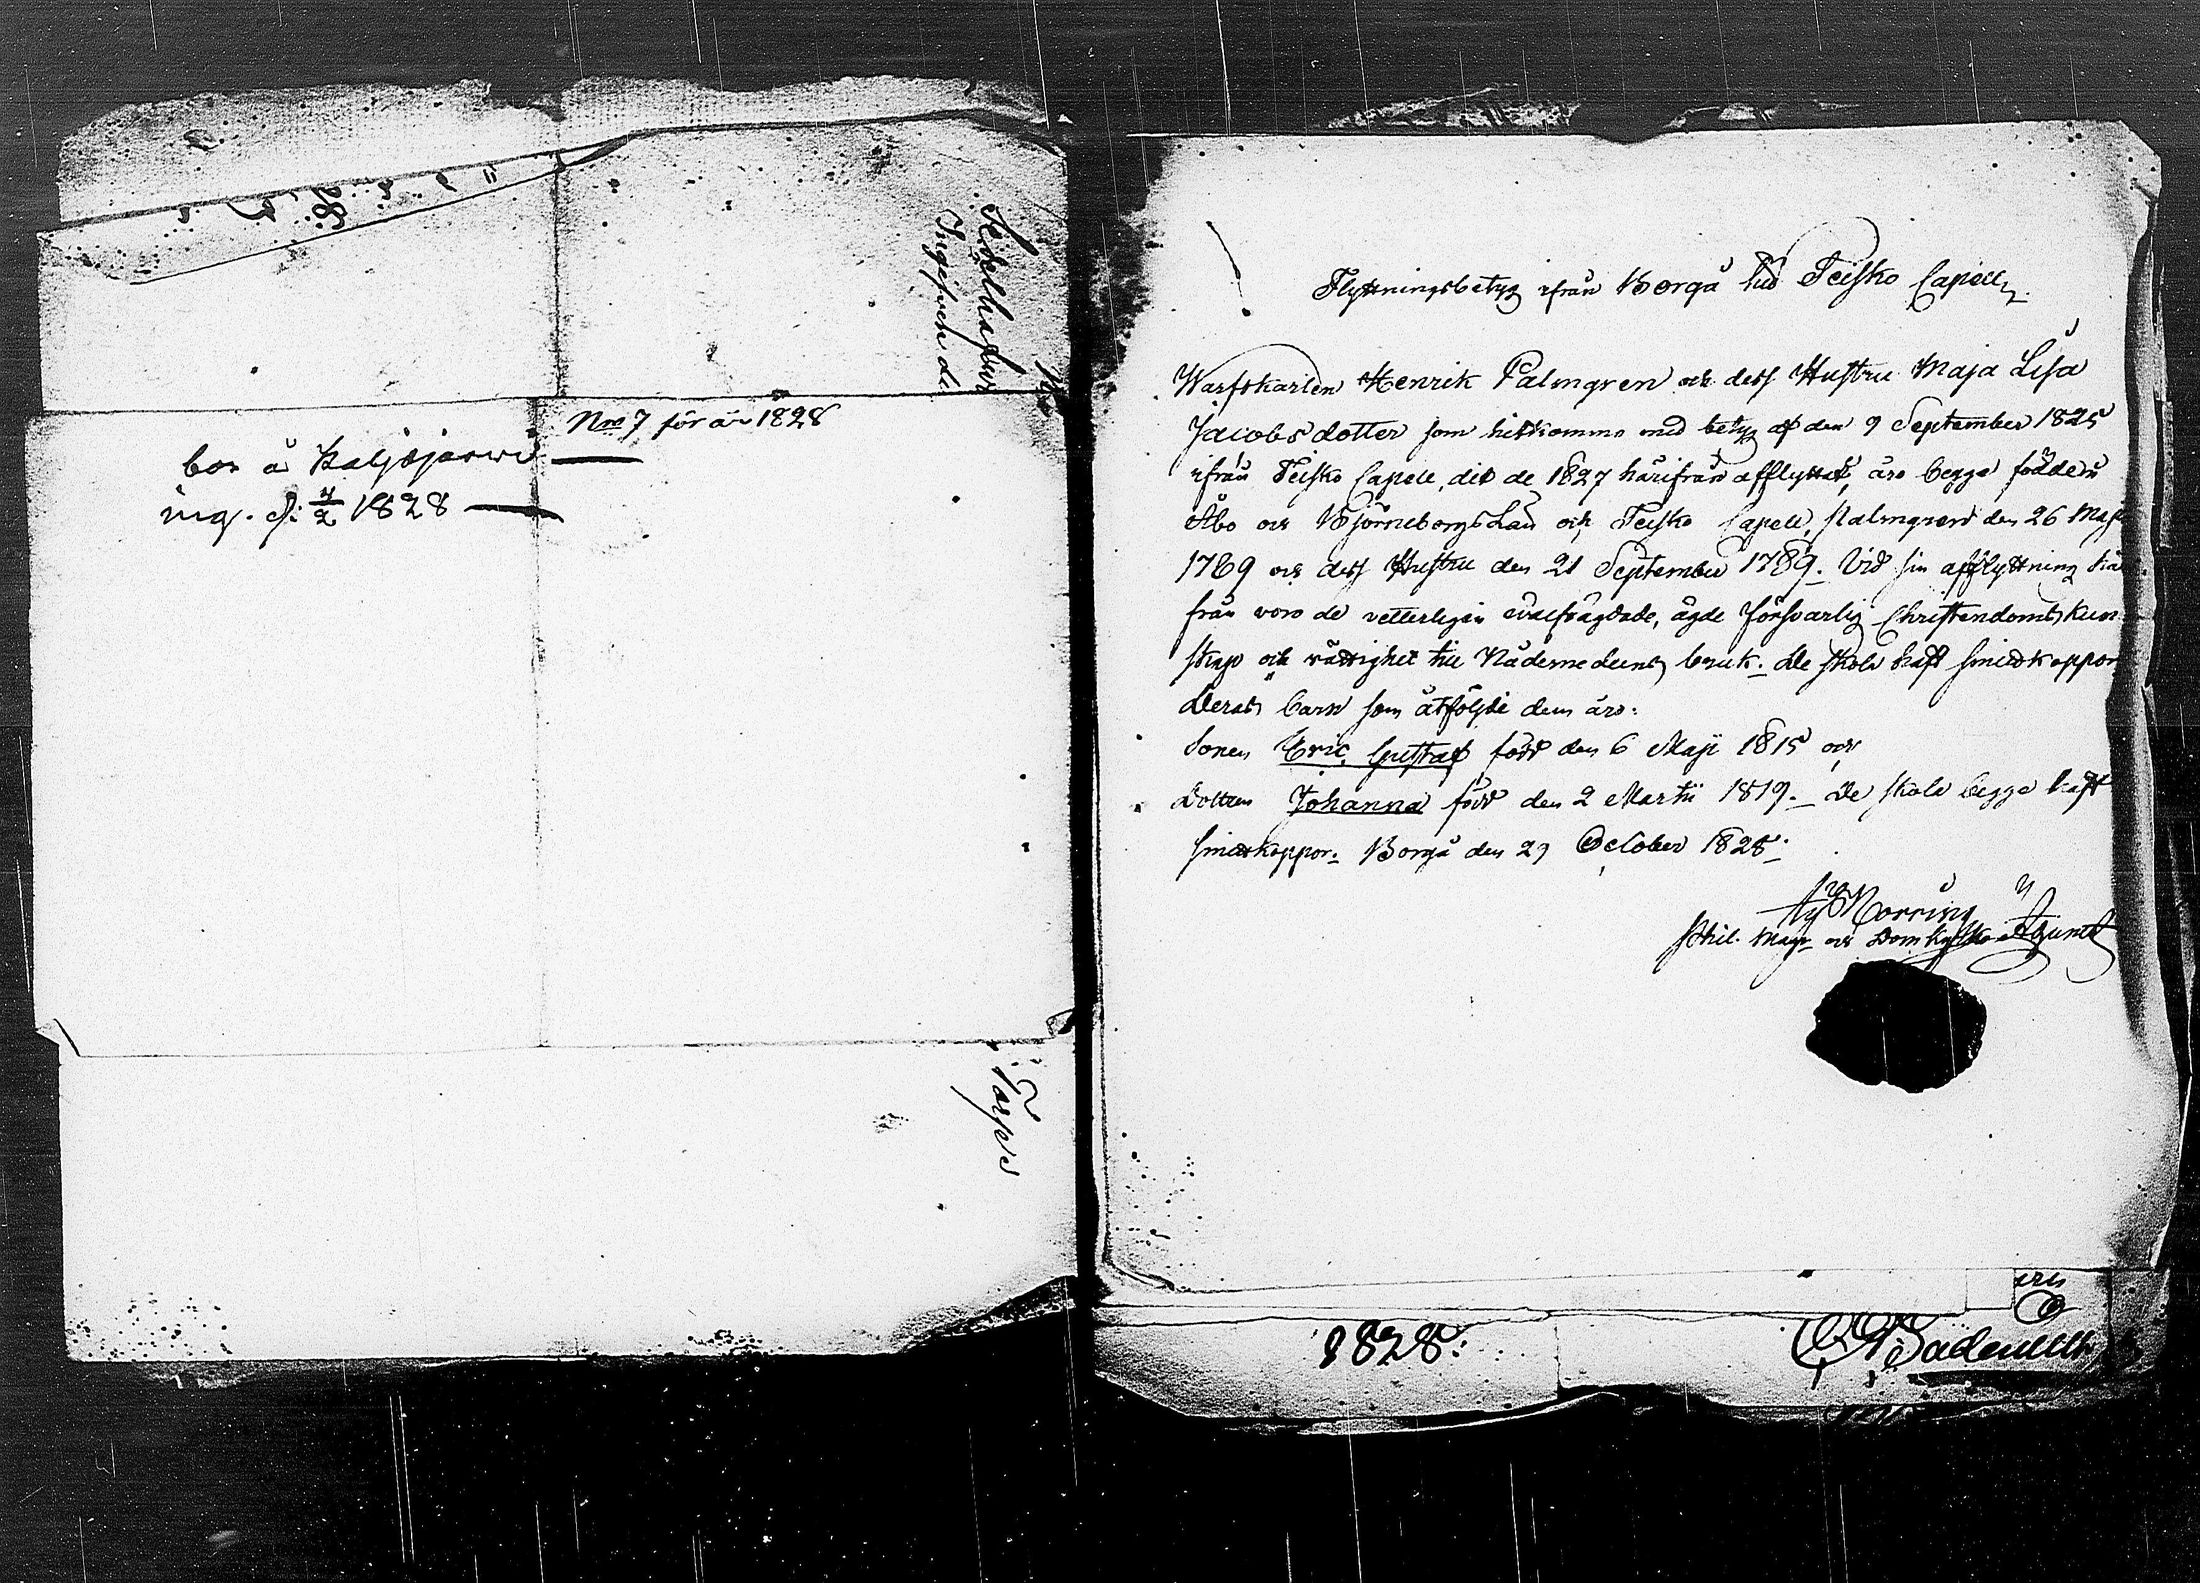 Nro 7 för år 1828
bor å Kaljojärwi
ing. d: 4/2 1828
Torpet
Flyttningsbetyg ifrån Borgå till Teisko Capell
Warfskarlen Henrik Palmgren och dess Hustru Maja Lisa
Jacobsdotter som hitkommo med betyg af den 9 September 1825
ifrån Teisko Capell, dit de 1827 härifrån afflyttat, äro begge födde i
Åbo och Björneborgs Län och Teisko Capell, Palmgren den 26 Maji
1769 och dess Hustru den 21 September 1789. Vid sin afflyttning här
från voro de vetterligen välfrägdade, ägde försvarlig Christendoms kun
skap och rättighet till Nådemedlens bruk. De skola haft smittkoppor
Deras barn som åtföljde dem äro:
Sonen Eric Gustaf född den 6 Maji 1815 och
Dottren Johanna född den 2 Martii 1819. De skola begge haft
smittkoppor. Borgå den 29 October 1828.
Norring
Phil. Mag. och Domkyrko Adjunct
1828: